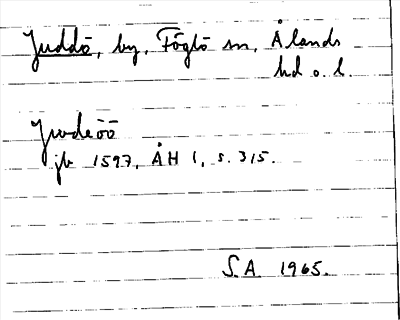 Juddö, by, Föglö sn, Ålands
hd o. l.
Jwdeöö
jb 1597, ÅH 1, s. 315.
S.A. 1965.